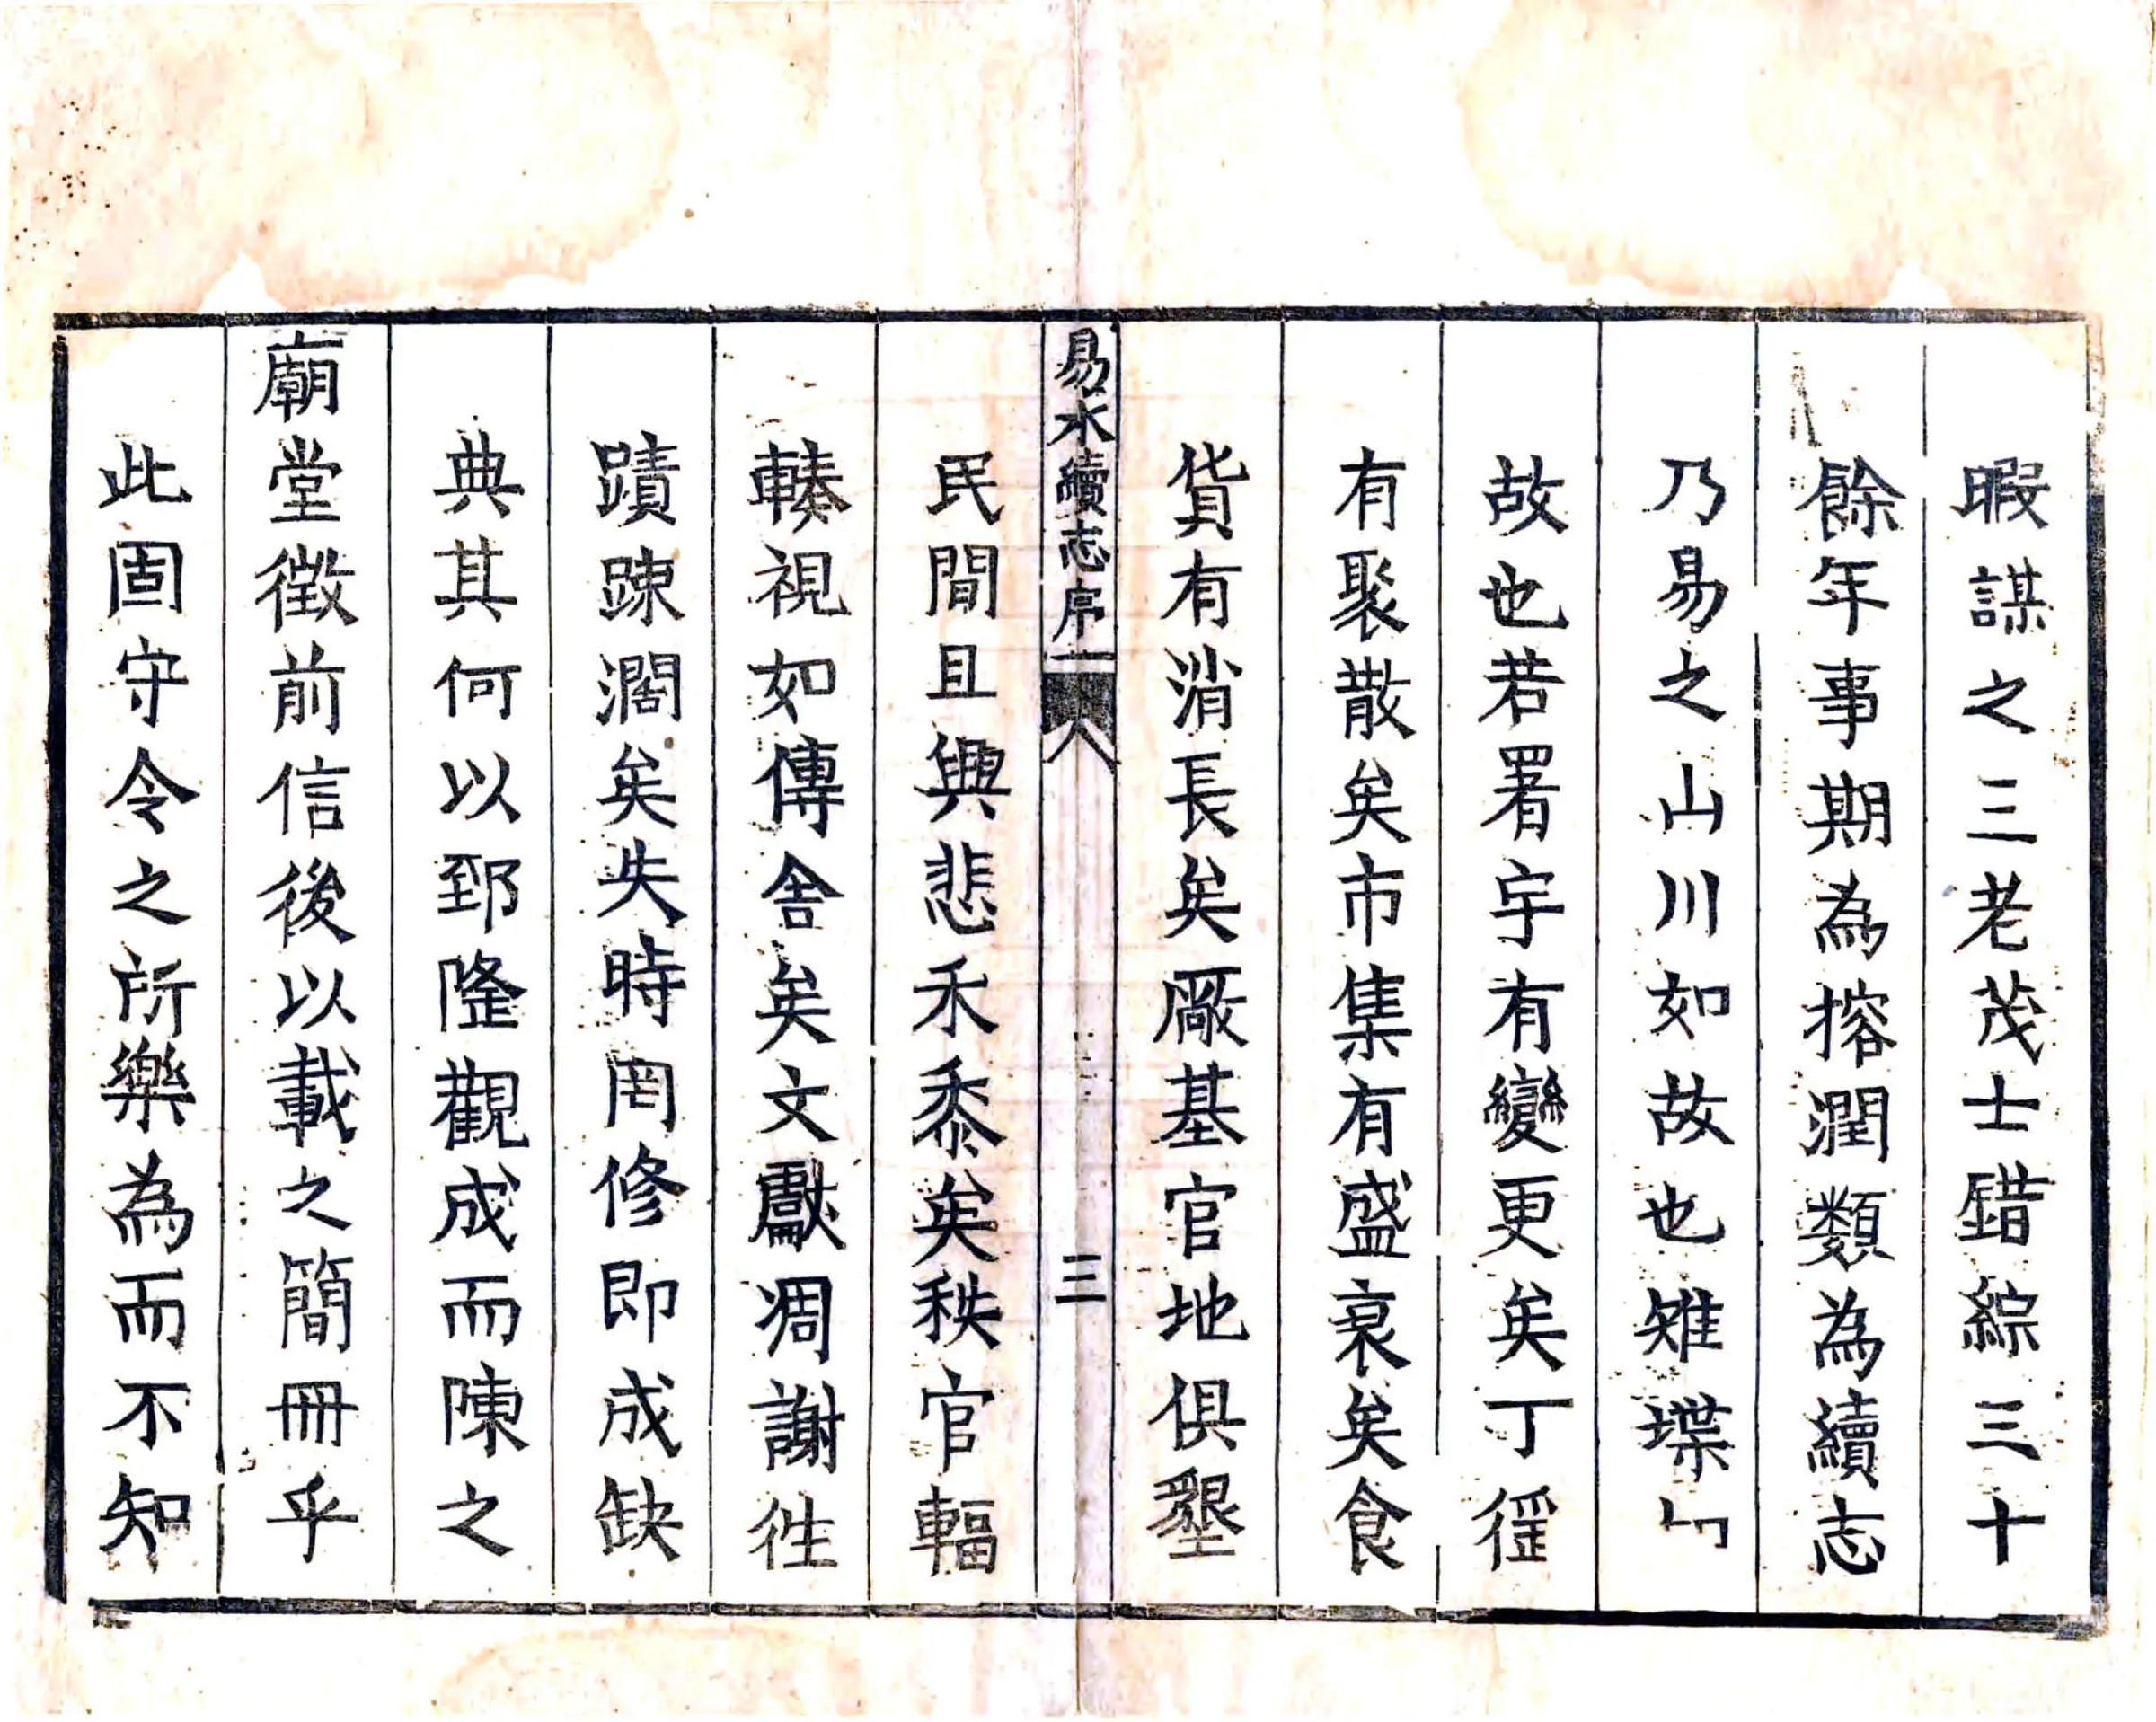 暇謀之三老茂士錯綜三十
餘年事期為搈潤類為續志
乃易之山川如故也雉堞如
故也若署宇有變更矣丁徭
有聚散矣市集有盛衰矣食
貨有消長矣厰基官地俱墾
易水續志序
三
民間且興悲禾黍矣秩官輻
輳視如傳舍矣文獻凋謝徃
蹟踈濶矣失時罔修即成缺
典其何以郅隆觀成而陳之
廟堂徴前信後以載之簡冊乎
此固守令之所樂為而不知